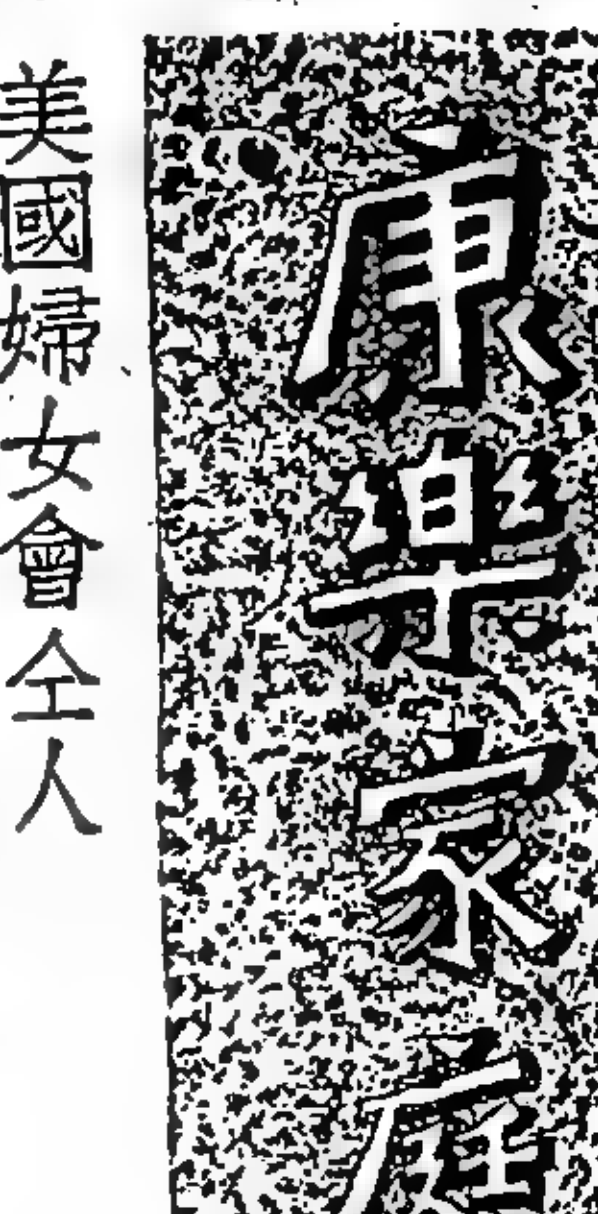 康樂家庭
美國婦女會仝人